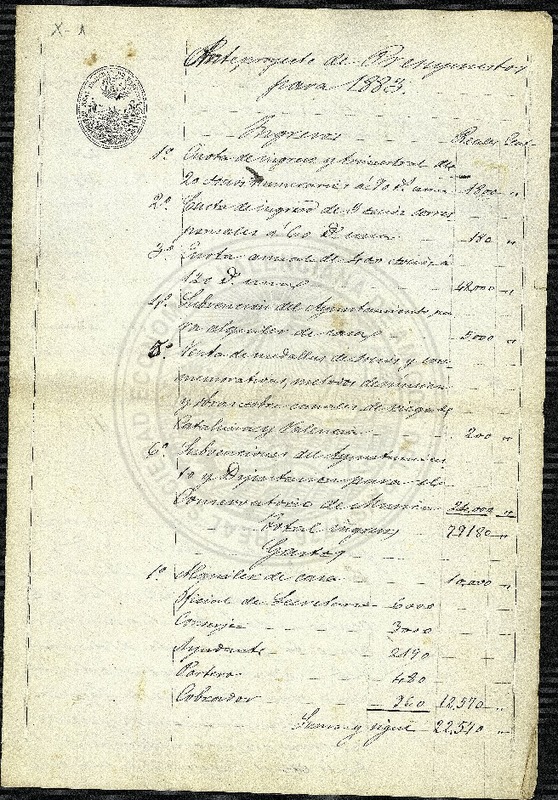 X-1
Anteproyecto de Presupuestos
para 1883.
Ingresos
Reales Cent.
1º Cuota de ingreso y trimestral de
20 socios numerarios á 90 rˢ uno 1800 "
2º Cuota de ingreso de 3 socios corres
ponsales á 60 rˢ cada 180 "
3º Cuota anual de 400 socios á
120 rˢ uno 48,000 "
4º Subvencion del Ayuntamiento pa
ra alquiler de casa 5000 "
5º Venta de medallas de socios y con
memorativas, metodos de musica
y obras sobre canales de riego de
Cataluña y Valencia 200 "
6º Subvenciones del Ayuntamien
to y Diputacion para el
Conservatorio de Musica 24,000 "
Total ingresos 79180 "
Gastos
1º Alquiler de casa 10,000 "
Oficial de Secretaria 6000
Conserje 3000
Ayudante 2190
Portero 480
Cobrador 960 12,570 "
Suma y sigue 22,570 "